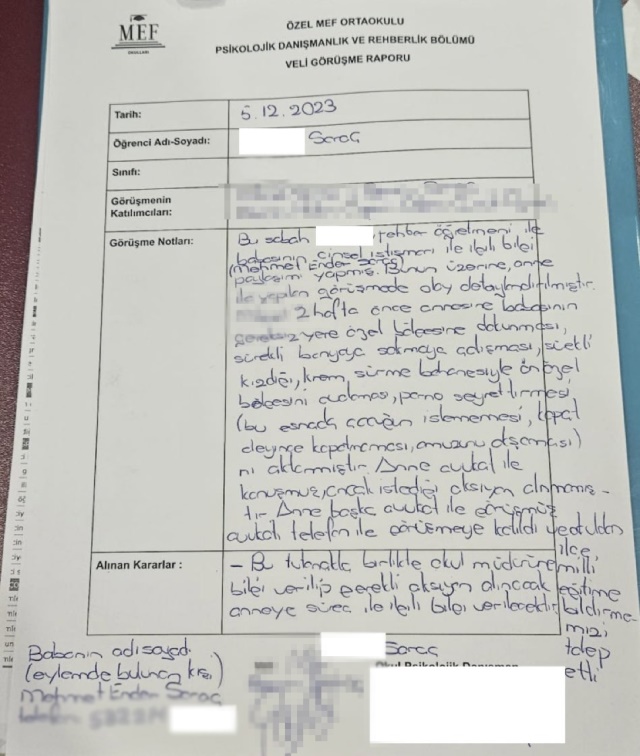 MEF
OKULLARI
ÖZEL MEF ORTAOKULU
PSİKOLOJİK DANIŞMANLIK VE REHBERLİK BÖLÜMÜ
VELİ GÖRÜŞME RAPORU
Tarih: 5.12.2023
Öğrenci Adı-Soyadı: Saraç
Sınıfı:
Görüşmenin Katılımcıları:
Görüşme Notları: Bu sabah rehber öğretmeni ile
babasının cinsel istismarı ile ilgili bilgi
(Mehmet Ender Saraç)
paylaşım yapmış. Bunun üzerine, anne
ile yapılan görüşmede olay detaylendirilmiştir.
2 hafta önce annesine babasının
yere özel bölgesine dokunması,
sürekli banyoya sokmaya çalışması, sürekli
kızdığı, krem sürme bahanesiyle ön özel
bölgesini porno seyrettirmesi
(bu esnada çocuğun istememesi, kapat
deyince kapatmaması,
nı aktarmıştır. Anne avukat ile
konuşmuş, ancak istediği aksiyon alınmamış-
tır. Anne başka avukat ile görüşmüş
avukat telefon ile görüşmeye katıldı ve okuldan
ilçe
Alınan Kararlar : - Bu tutanakla birlikte okul müdürüne milli
bilgi verilip gerekli aksiyon alınacak eğitime
anneye süreç ile ilgili bilgi verilecektir. bildirme-
mizi
talep
etti
Babanın adı soyadı
(eylemde bulunan kişi)
Mehmet Ender Saraç
Saraç